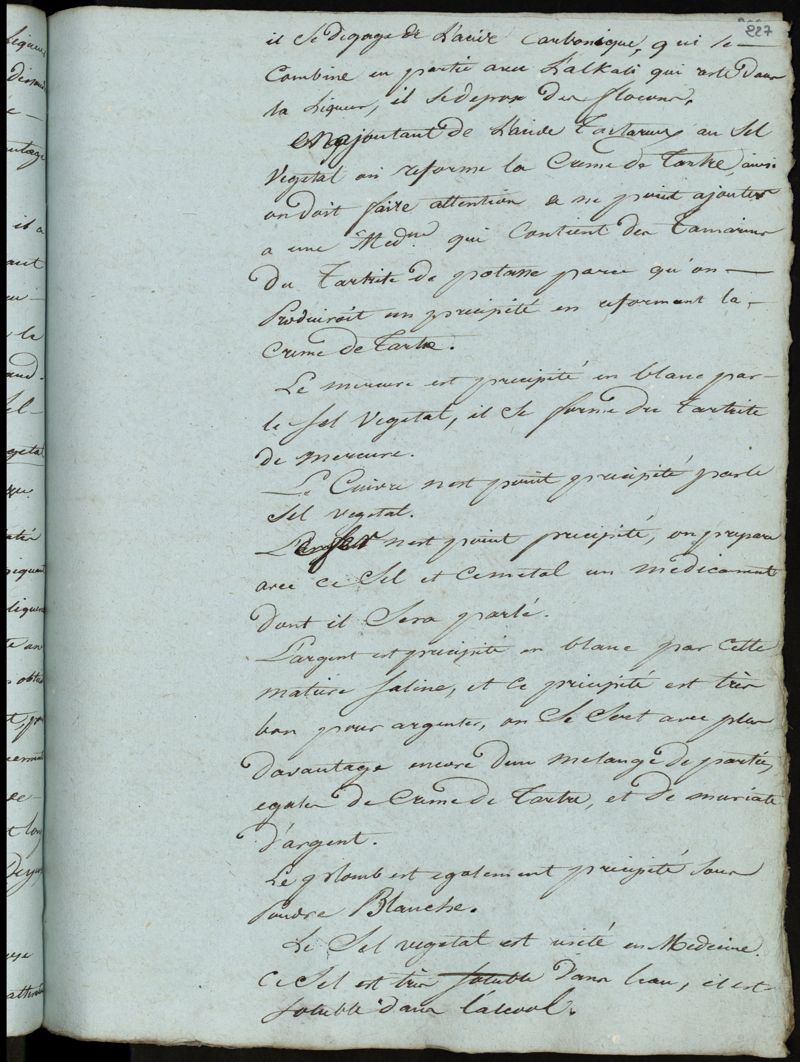 227
il se degage de L'acide carbonique, qui se —
combine en partie avec L'alkali qui reste Dans
la Liqueur, il se depose des flocons,
en ajoutant de L'acide Tartareux au Sel
Vegetal on reforme la Creme de Tartre, ainsi
on doit faire attention de ne point ajouter
a une Med.ne qui Contient des Tamarins
Du Tartrite de potasse parce qu'on —
Produiroit un precipité en reformant la —
Creme de Tartre.
Le mercure est precipité en blanc par —
le Sel Vegetal, il se forme du Tartrite
de mercure.
Le Cuivre n'est point precipité par le
Sel vegetal.
Le fer n'est point precipité, on prepare
avec ce Sel et ce metal un medicament
Dont il Sera parlé.
L'argent est precipité en blanc par cette
matiere Saline, et ce precipité est très
bon pour argenter, on se sert avec plus
Davantage encore d'un melange de parties
egales de Creme de Tartre, et de muriate
d'argent.
Le plomb est egalement precipité sous
Poudre Blanche.
Le Sel vegetal est usité en Medecine.
Ce Sel est très soluble dans l'eau, il est
soluble dans l'alcool.